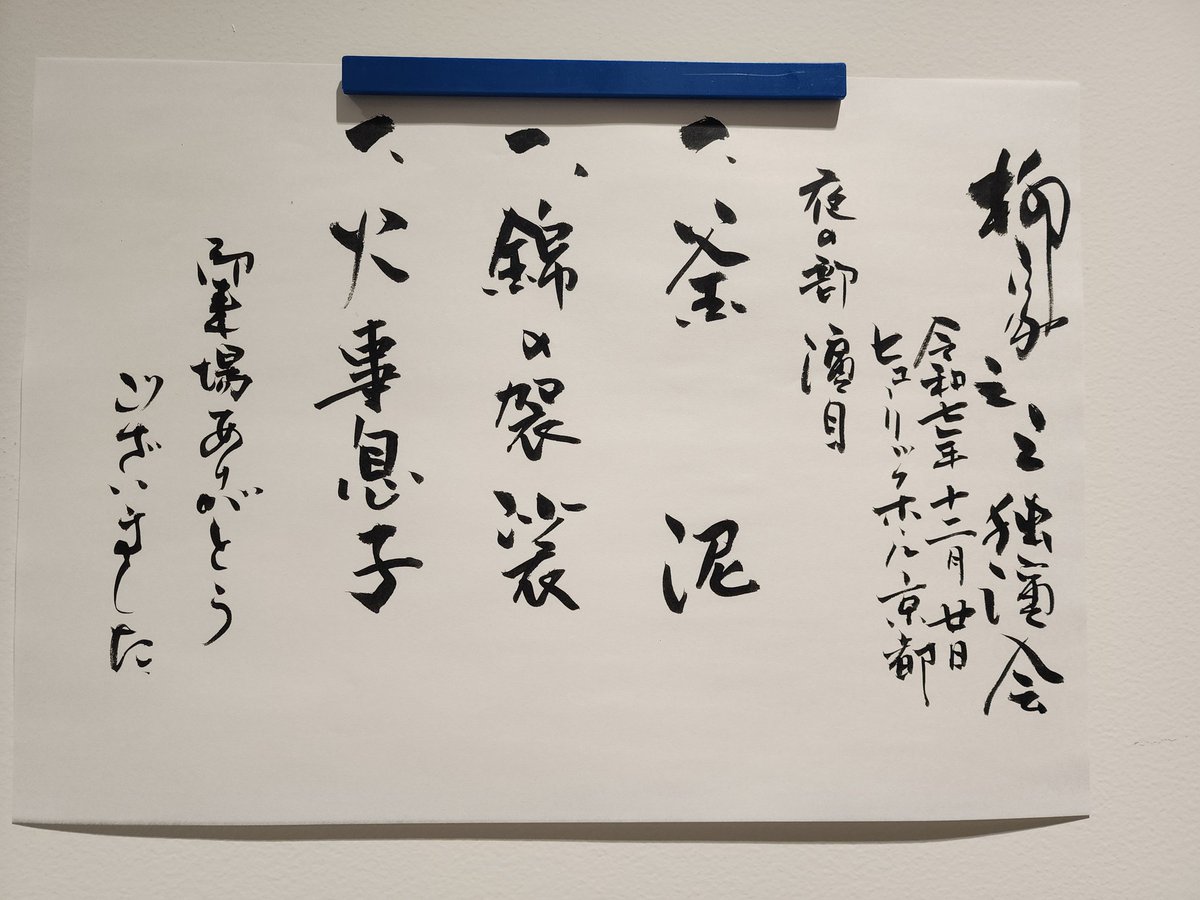 柳家三三独演会
令和七年十二月廿日
ヒューリックホール京都
夜の部 演目
一、釜泥
一、錦の袈裟
一、火事息子
御来場ありがとう
ございました